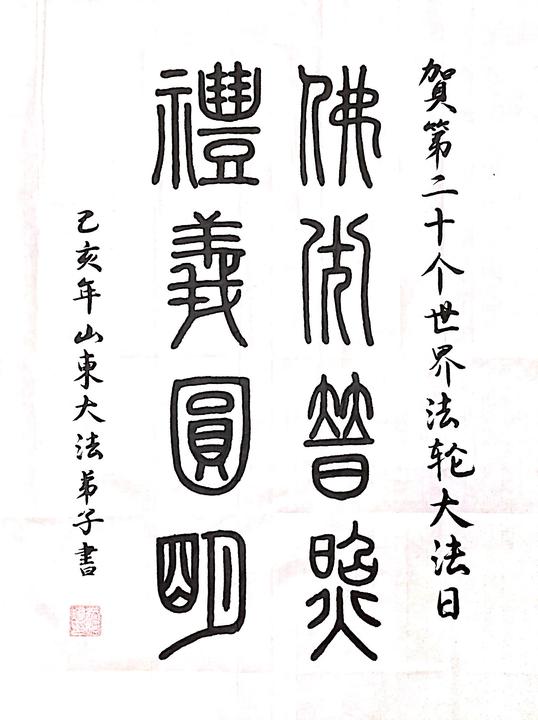 賀第二十个世界法轮大法日
佛光普照
禮義圓明
己亥年山東大法弟子書